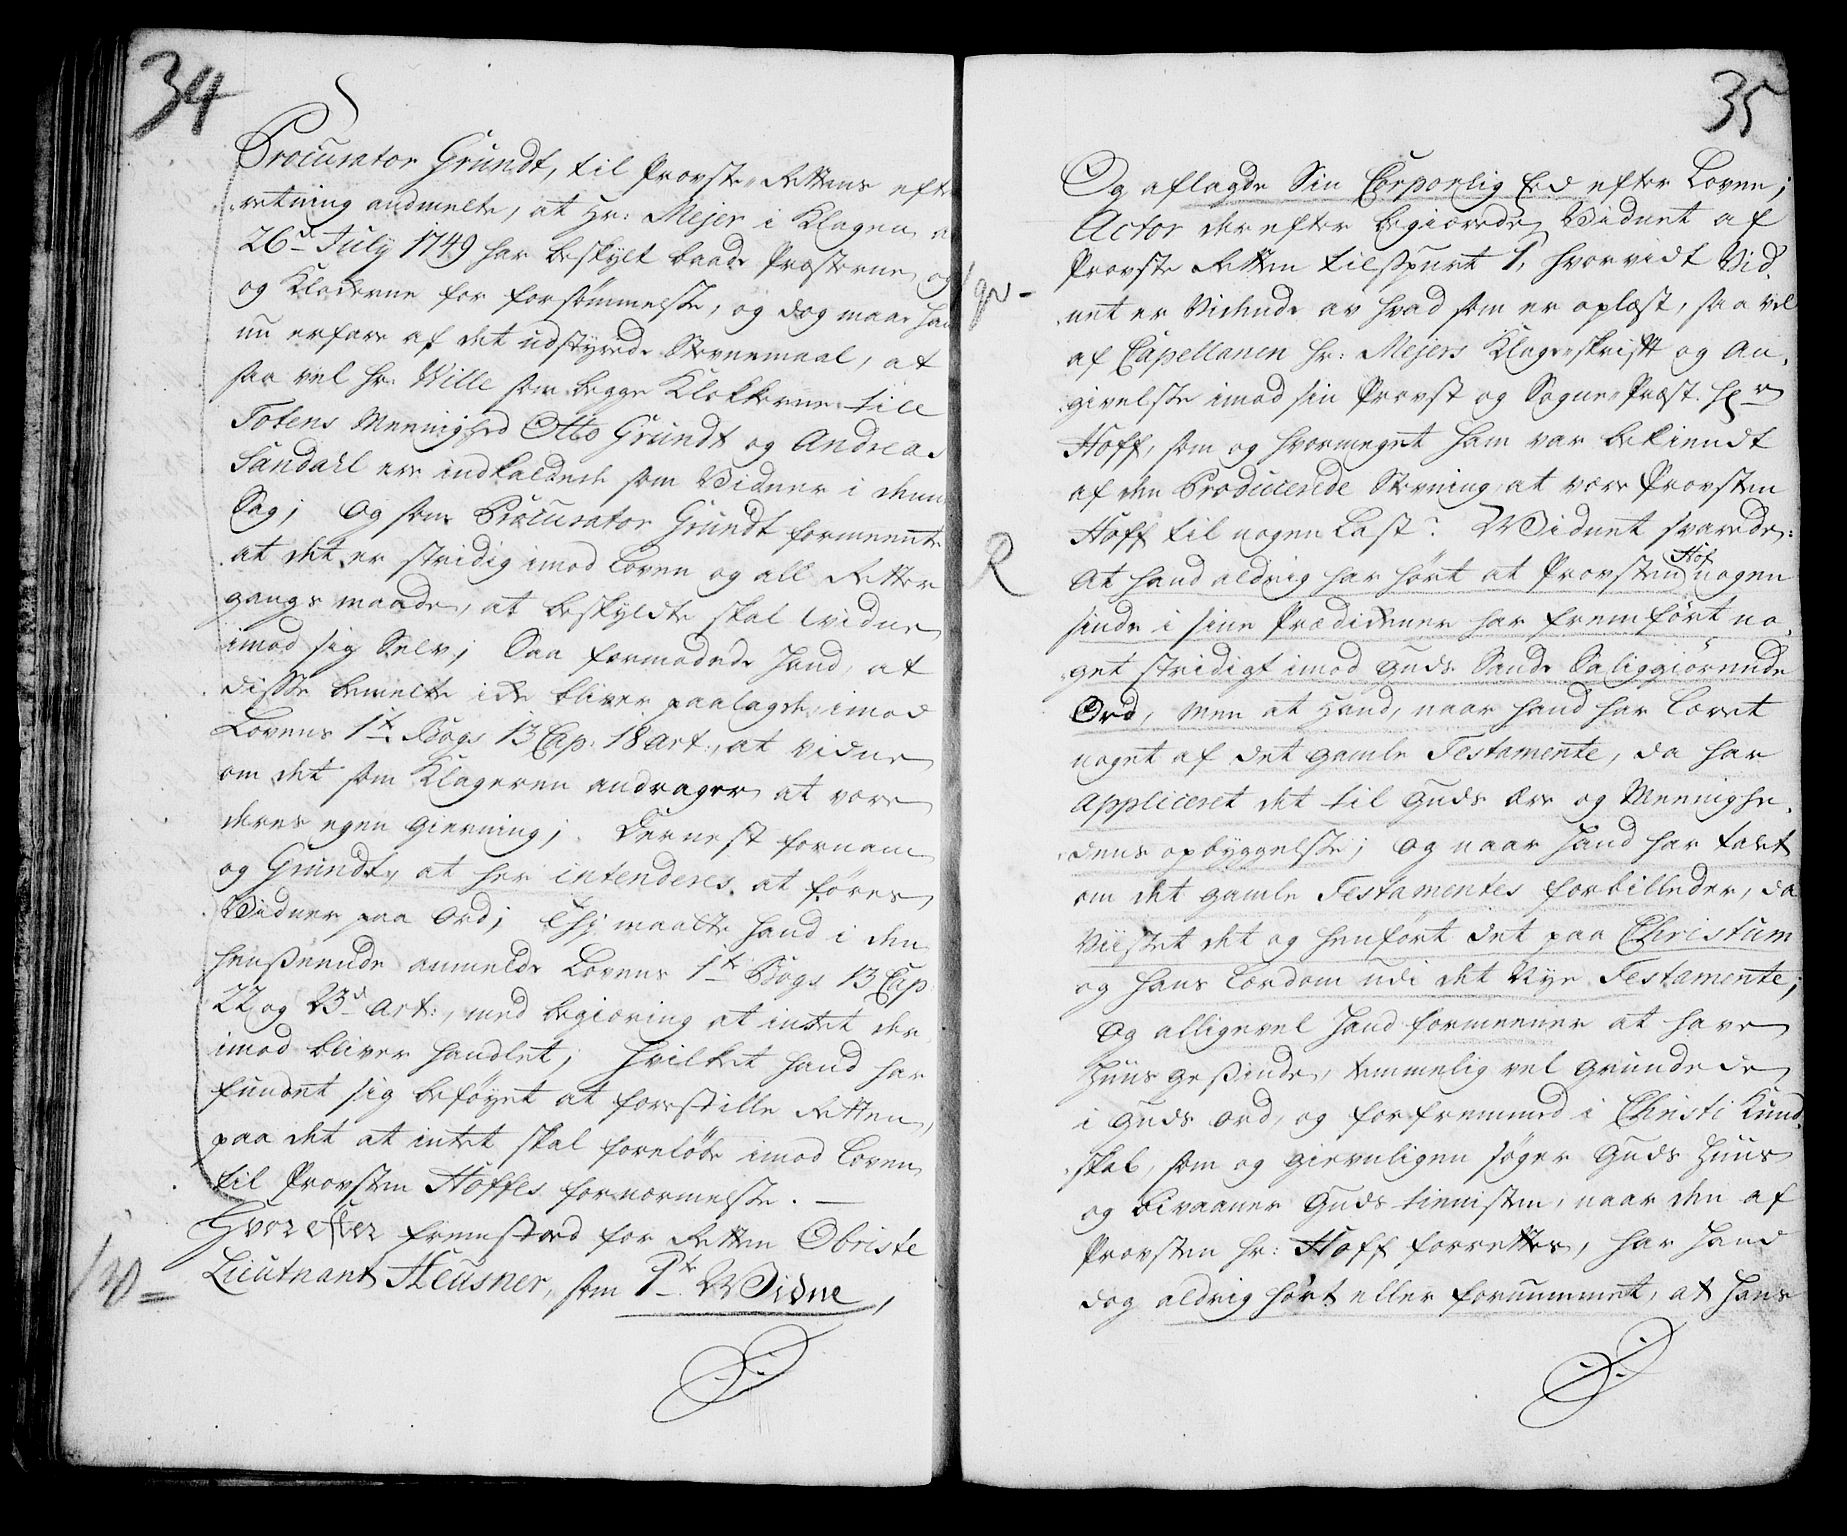 34
Procurator Grundt, til Provste-Rettens eft
retning anmelte, at Hr: Mejer i Klagen a
26de July 1749 har beskylt baade Præsterne og
og Klockerne for forsømmelse, og dog maae han
nu erfare af det udstyrede Stevnemaal, at
saa vel Hr. Wille som begge Klokkerne till
Totens Meenighed Otto Grundt og Andreas
Sandahl ere indkaldede som Vidner i denn
Sag; Og som Procurator Grundt formeente
at det er stridig imod Loven og all Retter
gangs maade, at beskyldte skal vidne
imod sig Selv; Saa formodede Hand, at
disse bemelte icke bliver paalagde, imod
Lovens 1te Bogs 13 Cap: 18 Art:, at vidne
om det som Klageren andrager at være
deres egen gierning; Dernest fornam
og Grundt, at her intenderes at føres
Vidner paa Ord; Thj maatte Hand i den
henseende anmelde Lovens 1te Bogs 13 Cap
22 og 23de Art:, med begiæring at intet der
imod bliver handlet; Hvilket Hand har
fundet sig beføyet at forestille Retten,
paa det at intet skal foreløbe imod Loven
til Provsten Hoffes fornærmelse. —
Hvorefter fremstod for Retten Obriste
Lieutnant Heusner, som 1te Vidne,
35
Og aflagde Sin Corporlig Eed efter Loven;
Actor derefter begiærede Vidnet af
Provste Retten tilspurt 1, hvorvidt Vid¬
net er Vidende av hvad som er oplæst, saa vel
af Capellanen Hr: Mejers Klage-skrift og An¬
givelse imod sin Provst og Sogne-Præst Hr
Hoff, som og hvormeget ham var bekiendt
af den Producerede Stevning, at være Provsten
Hoff til nogen Last? Widnet svarede:
R
At hand aldrig har hørt at Provsten Hof nogen
sinde i sine Prædickener har fremført no¬
get stridigt imod Guds Sande Saliggiørende
Ord, Men at Hand, naar hand har Læret
noget af det gamle Testamente, da har
Appliceret det til Guds Ære og Meenighe¬
dens opbyggelse; Og naar Hand har talt
om det gamle Testamentes forbilleder, da
Viistet det og henført det paa Christum
og hans Lærdom udi det Nye Testamente;
Og alligevel Hand formeener at have
Huus gesinde, temmelig vel grundede
i Guds Ord, og forfremmed i Christi Kund¬
skab, som og gierneligen søger Guds Huus
og bivaaner Guds tienisten, naar den af
Provsten Hr: Hoff forrettes, har Hand
dog aldrig hørt eller fornummet, at Hans